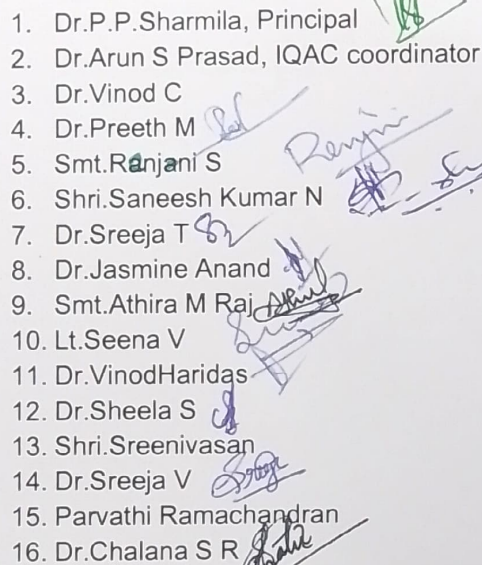 1. Dr.P.P.Sharmila, Principal
2. Dr.Arun S Prasad, IQAC coordinator
3. Dr.Vinod C
4. Dr.Preeth M
5. Smt.Ranjani S
6. Shri.Saneesh Kumar N
7. Dr.Sreeja T
8. Dr.Jasmine Anand
9. Smt.Athira M Raj
10. Lt.Seena V
11. Dr.VinodHaridas
12. Dr.Sheela S
13. Shri.Sreenivasan
14. Dr.Sreeja V
15. Parvathi Ramachandran
16. Dr.Chalana S R